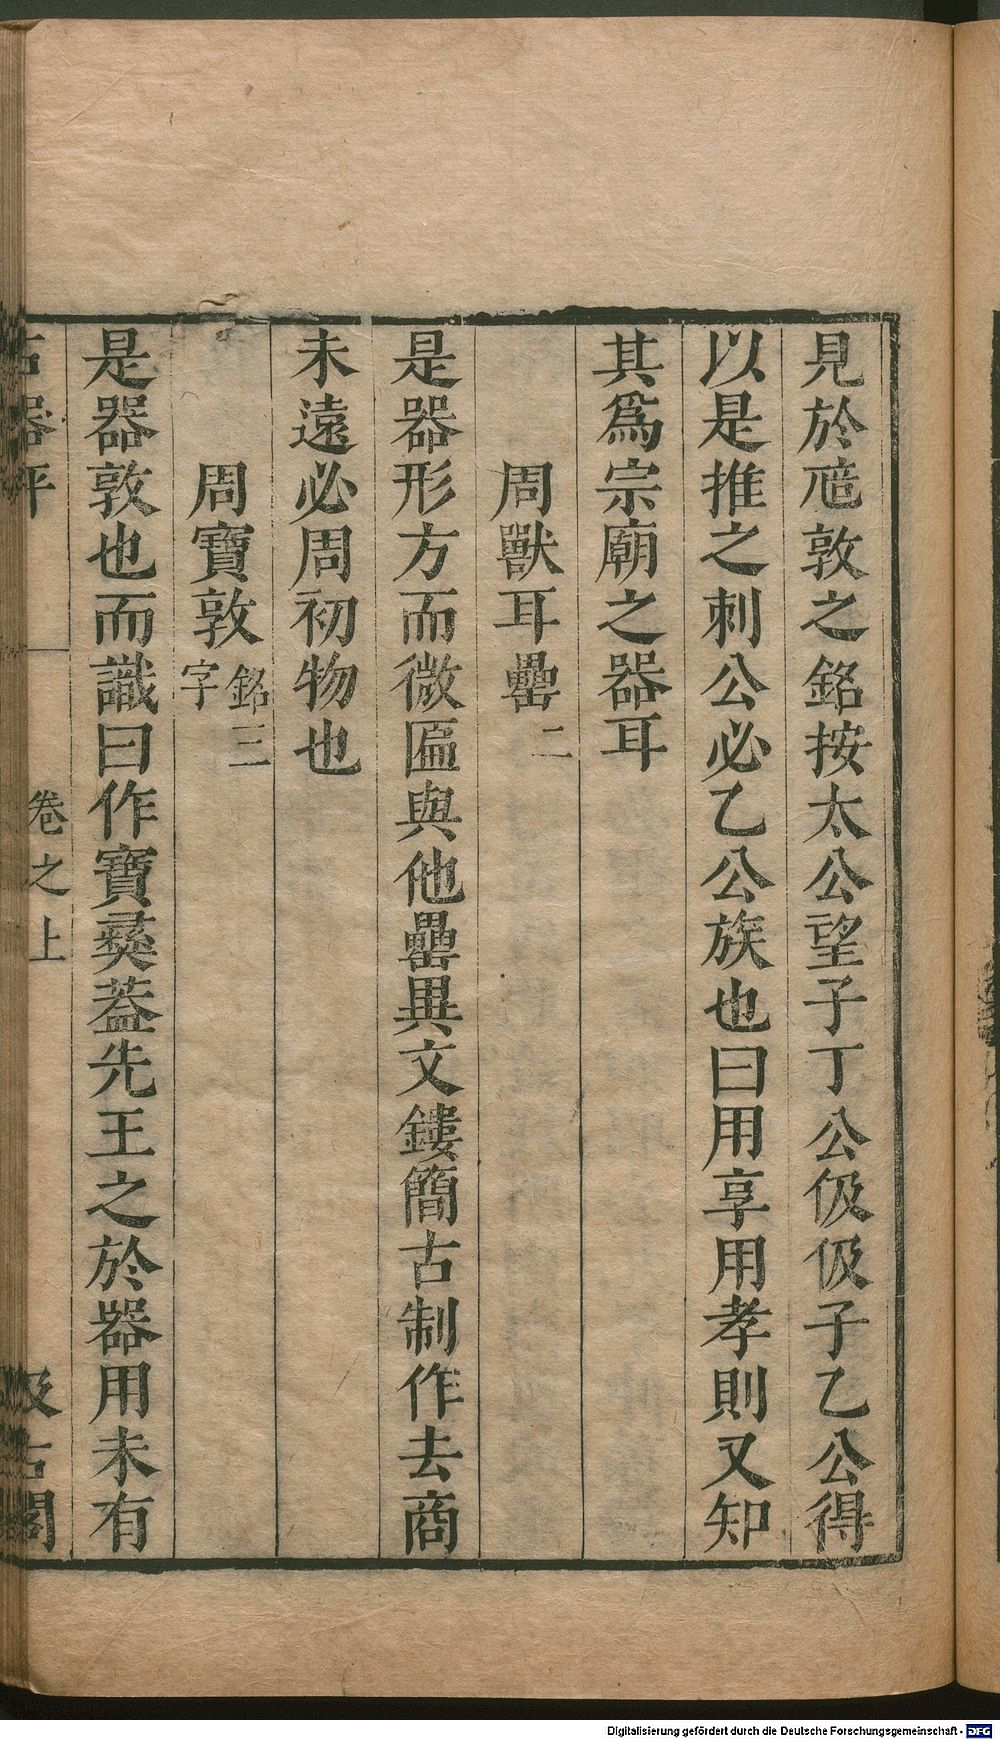 見於㢋敦之銘按太公望子丁公伋伋子乙公得
以是推之刺公必乙公族也曰用享用孝則又知
其爲宗廟之器耳
周獸耳罍二
是器形方而微匾與他罍異文鏤簡古制作去商
未遠必周初物也
周寶敦銘三字
是器敦也而識曰作寶彞葢先王之於器用未有
古器評 卷之上 汲古閣
Digitalisierung gefördert durch die Deutsche Forschungsgemeinschaft - DFG